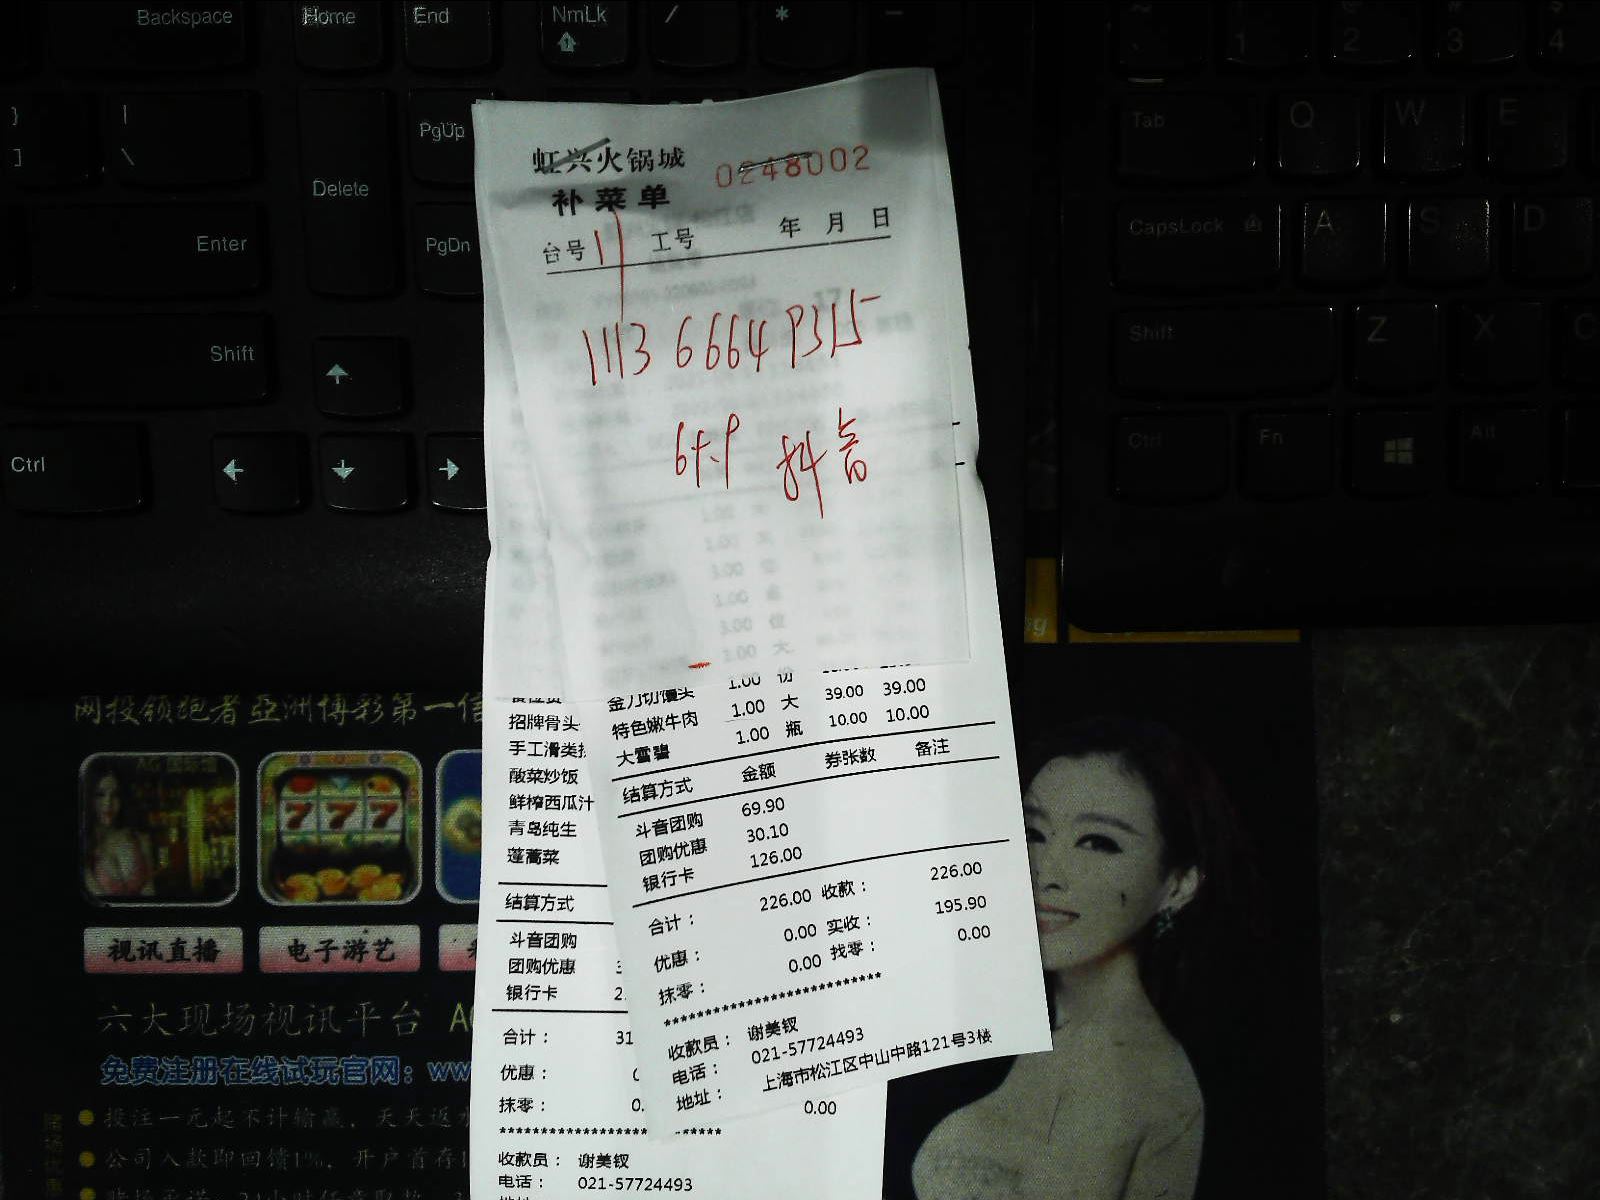 Backspace
Home
End
NmLk
/
*
-
}
]
|
\
Delete
PgUp
Enter
PgDn
Shift
Ctrl
1
2
3
4
Tab
Q
W
E
CapsLock
A
S
D
Shift
Z
X
C
Ctrl
Fn
Alt
虹兴火锅城
0248002
补菜单
台号 11 工号 年 月 日
1113 6664 9315
抖音
金刀切馒头 1.00 份
特色嫩牛肉 1.00 大 39.00 39.00
大雪碧 1.00 瓶 10.00 10.00
结算方式 金额 券张数 备注
斗音团购 69.90
团购优惠 30.10
银行卡 126.00
合计： 226.00 收款： 226.00
优惠： 0.00 实收： 195.90
抹零： 0.00 找零： 0.00
******************************
收款员： 谢美钗
电话： 021-57724493
地址： 上海市松江区中山中路121号3楼
招牌骨头
手工滑类
酸菜炒饭
鲜榨西瓜汁
青岛纯生
蓬蒿菜
结算方式
斗音团购
团购优惠
银行卡 2.
合计： 31
优惠：
抹零： 0.
0.00
收款员： 谢美钗
电话： 021-57724493
网投领跑者亞洲博彩第一信
视讯直播
电子游艺
六大现场视讯平台 AG
免费注册在线试玩官网：ww
投注一元起不计输赢，天天返水
公司入款即回馈1%，开户首存1